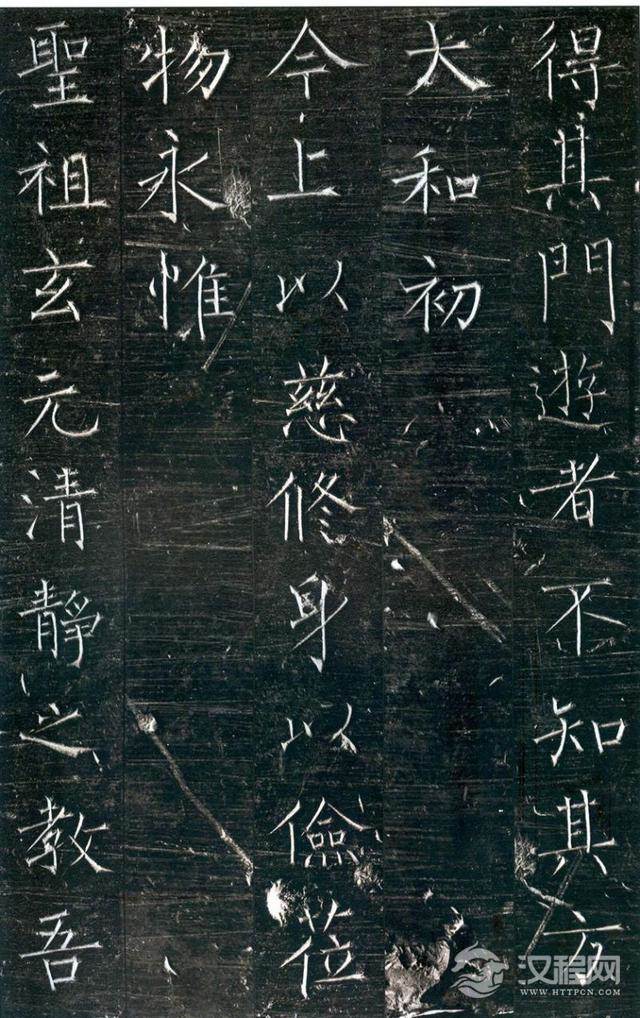 得其門遊者不知其方
太和初
今上以慈修身以儉莅
物永惟
聖祖玄元清靜之教吾
汉程网
WWW.HTTPCN.COM